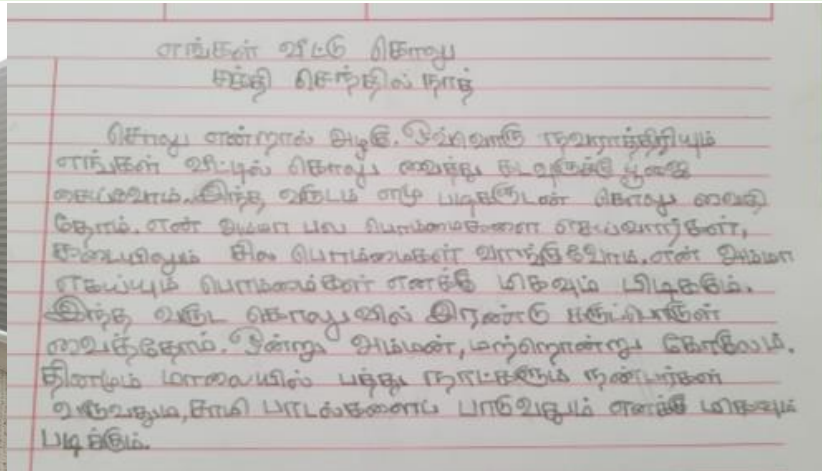 எங்கள் வீட்டு கொலு
சக்தி செந்தில் நாத்
கொலு என்றால் அழகு. ஒவ்வொரு நவராத்திரியும்
எங்கள் வீட்டில் கொலு வைத்து கடவுளுக்கு பூஜை
செய்வோம். இந்த வருடம் ஏழு படிகளுடன் கொலு வைத்
தோம். என் அம்மா பல பொம்மைகளை செய்வார்கள்,
கடையிலும் சில பொம்மைகள் வாங்குவோம். என் அம்மா
செய்யும் பொம்மைகள் எனக்கு மிகவும் பிடிக்கும்.
இந்த வருட கொலுவில் இரண்டு கருப்பொருள்
வைத்தோம். ஒன்று அம்மன், மற்றொன்று கோலம்.
தினமும் மாலையில் பத்து நாட்களும் நண்பர்கள்
வருவதும், சாமி பாடல்களைப் பாடுவதும் எனக்கு மிகவும்
படிக்கும்.